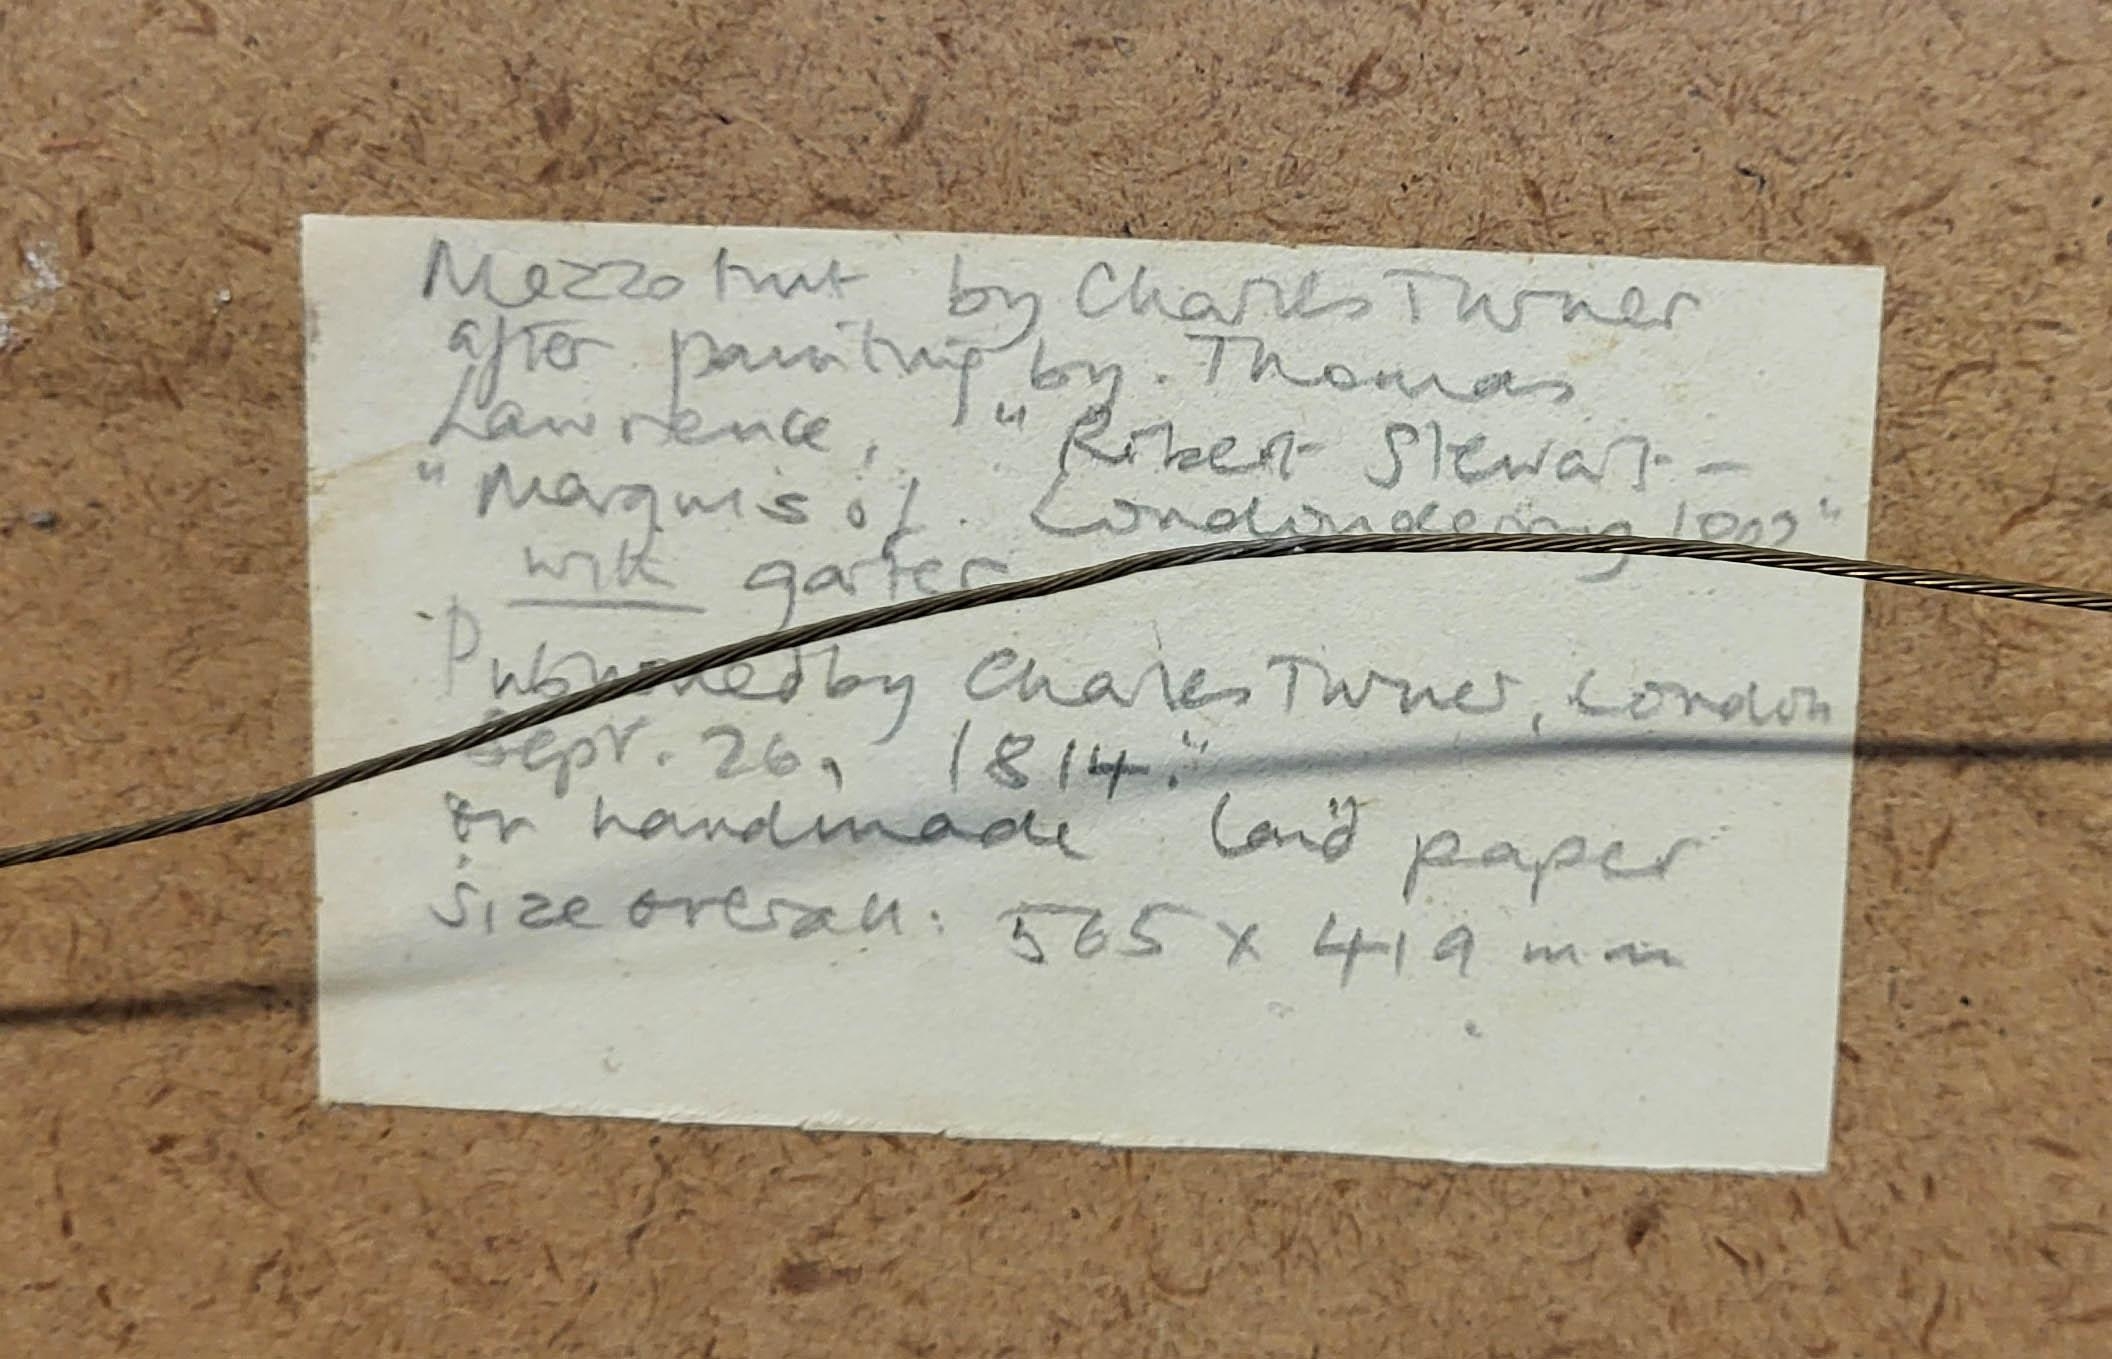 Mezzotint by Charles Turner
after painting by. Thomas
Lawrence, "Robert Stewart –
"Marquis of. Londonderry
with garter
Published by Charles Turner, London
Sepr. 26, 1814."
on handmade "laid" paper
Size overall: 565 x 419 mm